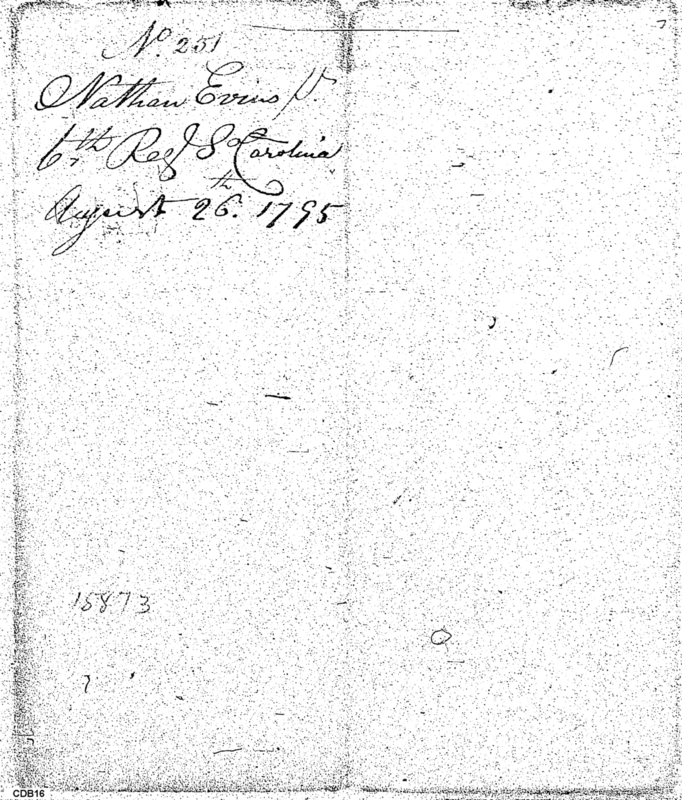 No. 251
Nathan Evins pt.
6th Reg So Carolina
August 26th. 1795
15873
CDB16